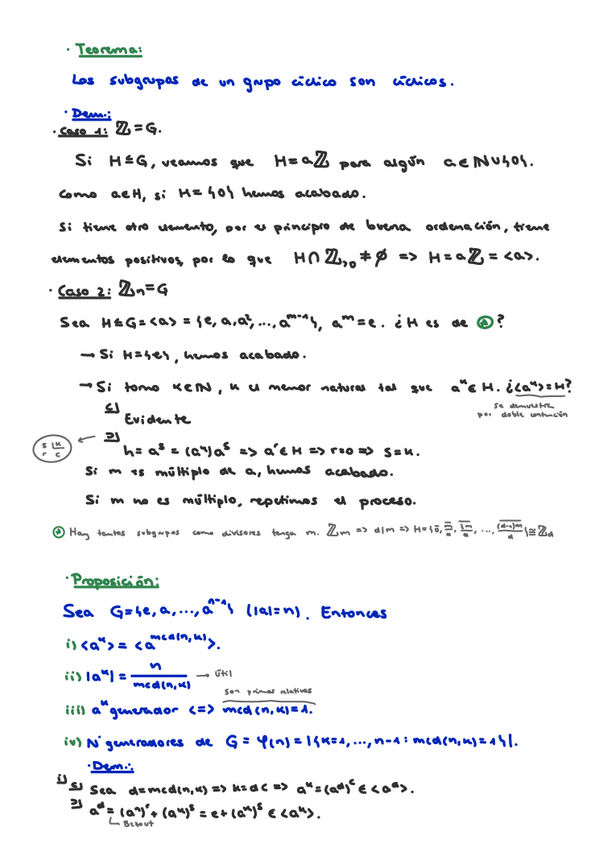 · Teorema:
Los subgrupos de un grupo cíclico son cíclicos.
· Dem.:
· Caso 1: ℤ=G.
Si H≤G, veamos que H=aℤ para algún a∈ℕ∪{0}.
Como a∈H, si H={0} hemos acabado.
Si tiene otro elemento, por el principio de buena ordenación, tiene
elementos positivos, por lo que H∩ℤ>0≠∅ => H=aℤ=<a>.
· Caso 2: ℤn=G
Sea H≤G=<a>={e,a,a²,...,a^{m-1}}, a^m=e. ¿H es de ⊛?
→ Si H={e}, hemos acabado.
→ Si tomo k∈ℕ, k el menor natural tal que a^k∈H. ¿<a^k>=H?
se demuestra
por doble contención
⊆
Evidente
⊇
s | k
r c
h=a^s=(a^k)a^s => a^r∈H => r=0 => s=k.
Si m es múltiplo de a, hemos acabado.
Si m no es múltiplo, repetimos el proceso.
⊛ Hay tantos subgrupos como divisores tenga m. ℤm => d|m => H={0̄, ..., (d-1)m/d}≅ℤd
· Proposición:
Sea G={e,a,...,a^{n-1}} (|a|=n). Entonces
i) <a^k>=<a^{mcd(n,k)}>.
ii) |a^k|= n/mcd(n,k) → útil
son primos relativos
iii) a^k generador <=> mcd(n,k)=1.
iv) Nº generadores de G=φ(n)=|{k=1,...,n-1:mcd(n,k)=1}|.
· Dem.:
i) ⊆ Sea d=mcd(n,k) => k=dc => a^k=(a^d)^c∈<a^d>.
⊇ a^d=(a^n)^r+(a^k)^s=e+(a^k)^s∈<a^k>.
Bezout